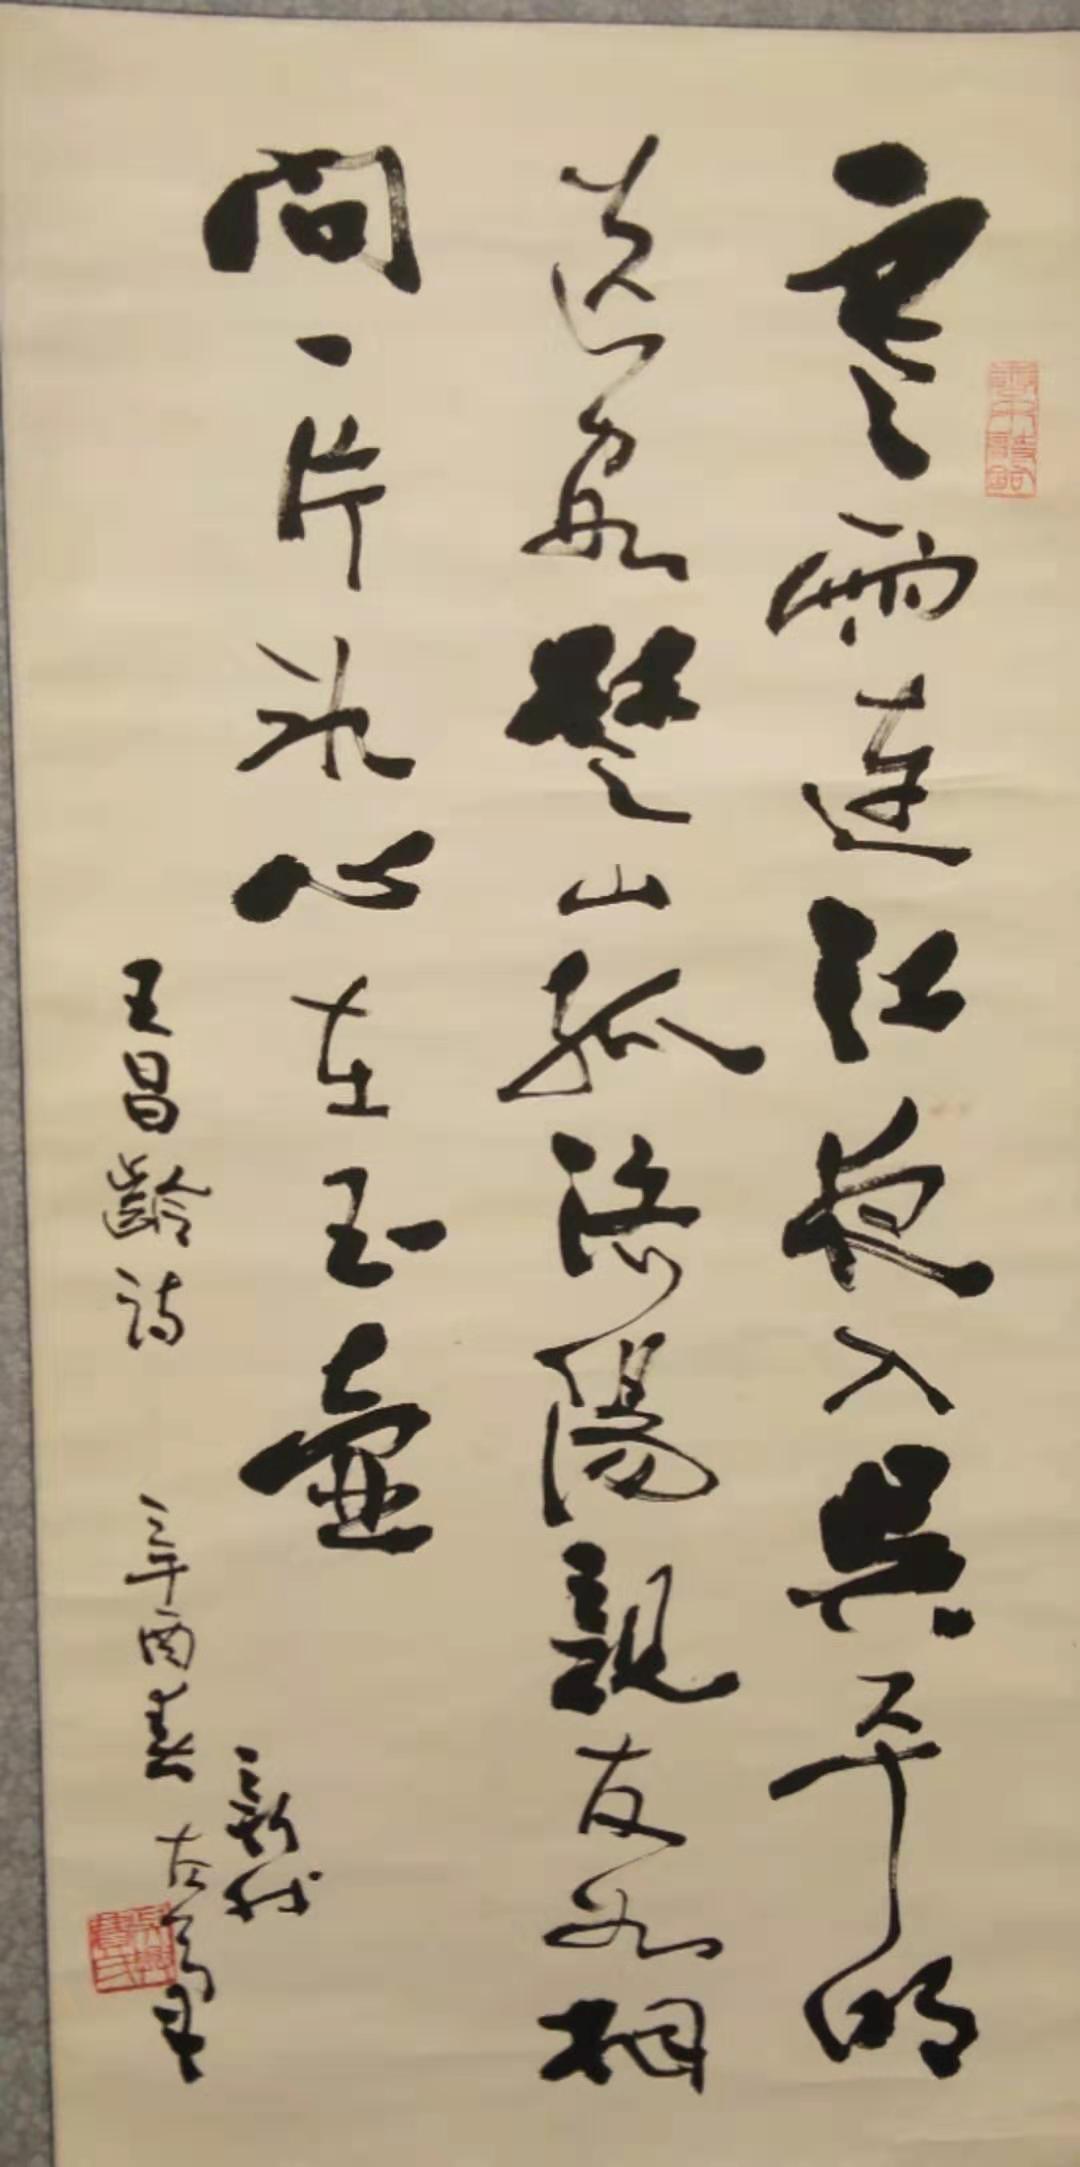 寒雨連江夜入吴平明
送客楚山孤洛陽親友如相
問一片冰心在玉壺
王昌齡詩 辛酉春